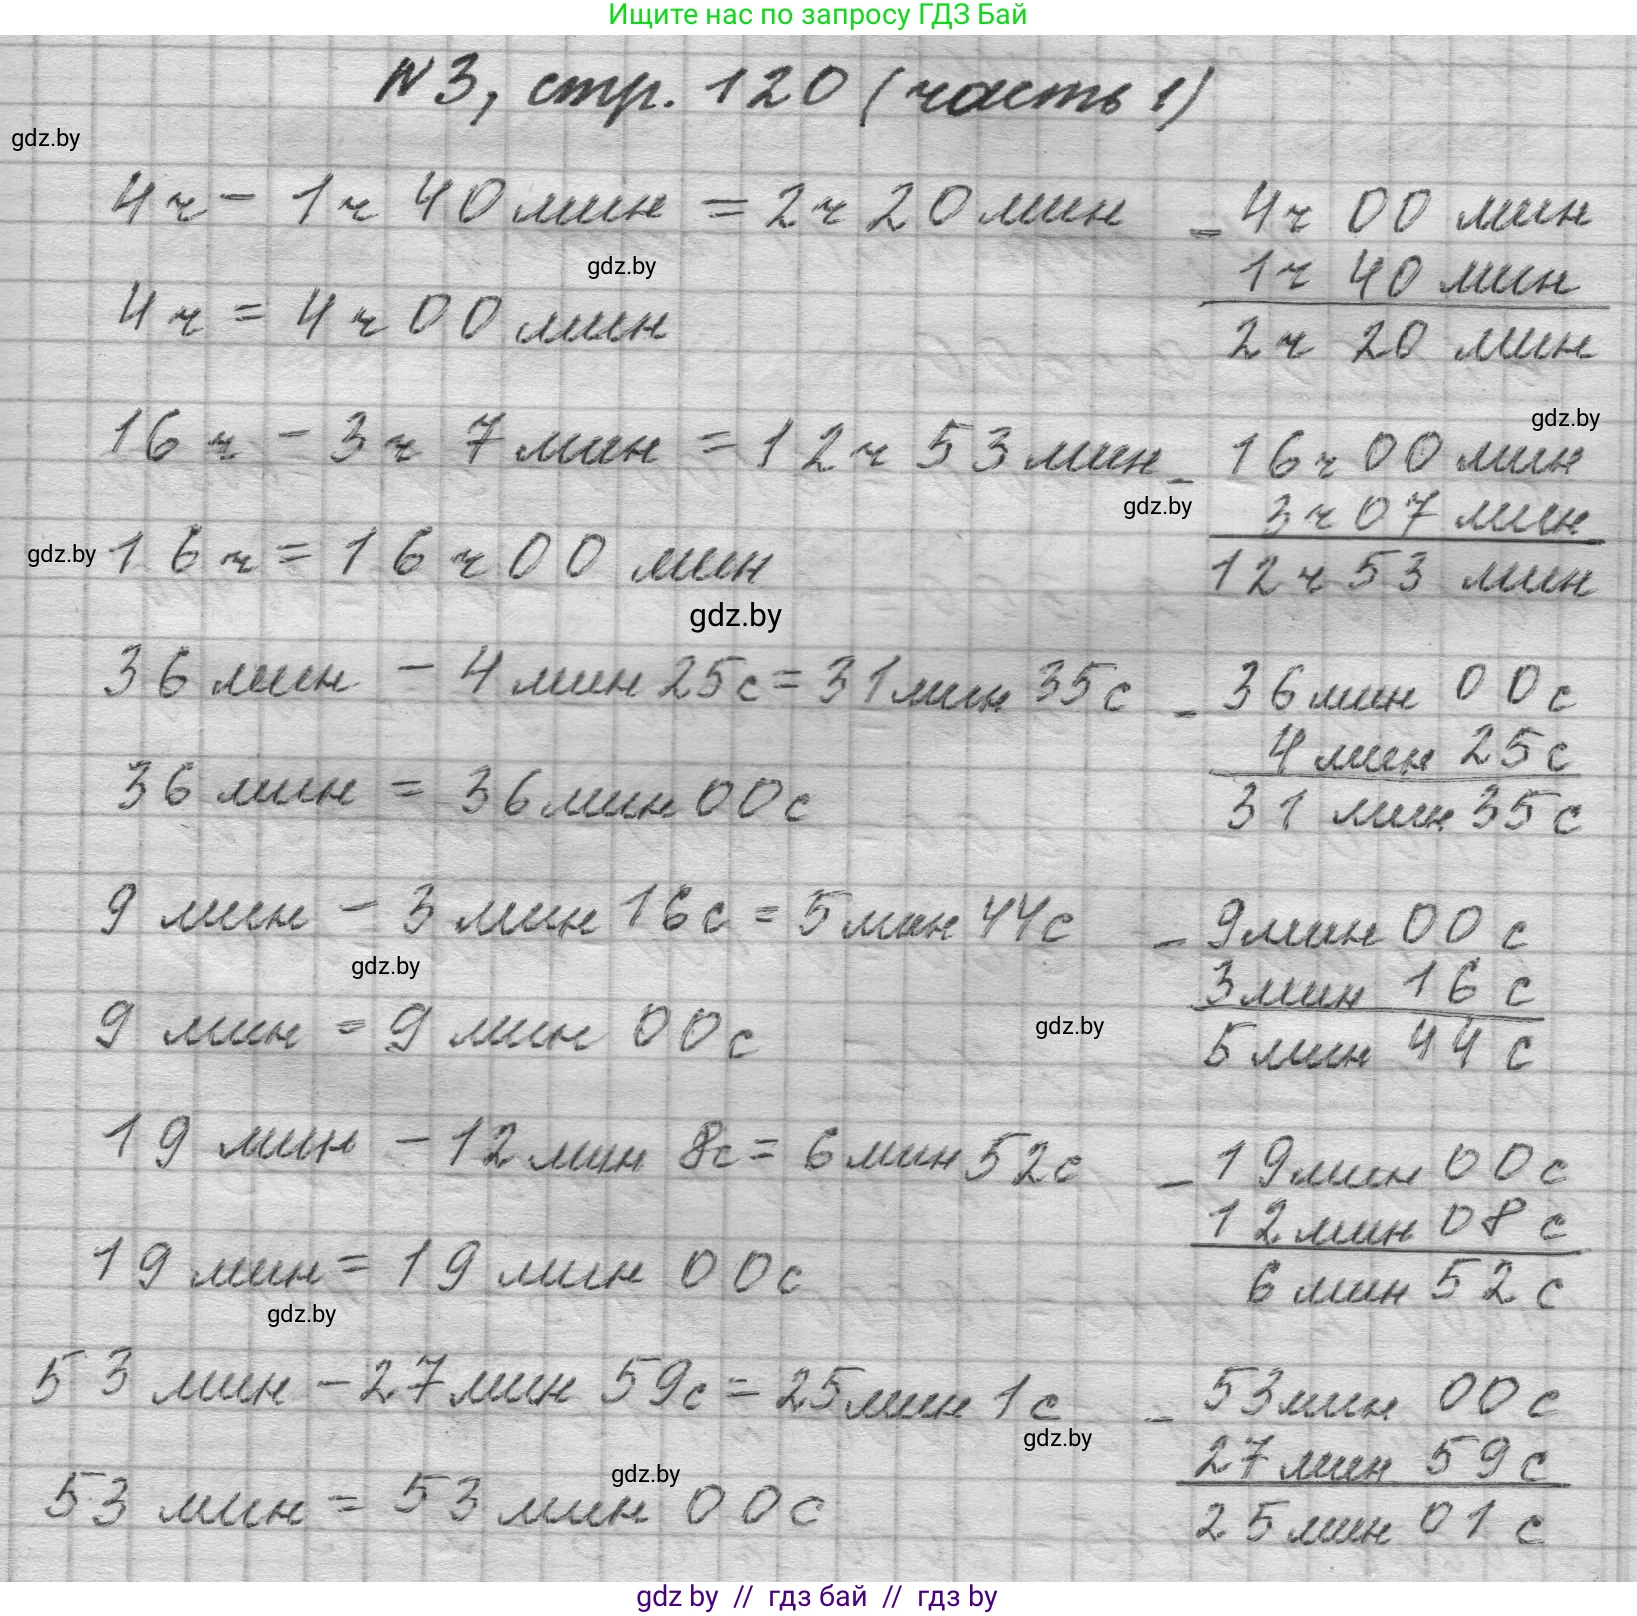 Ищите нас по запросу ГДЗ Бай
N3, стр. 120 (часть 1)
gdz.by
4ч - 1ч 40 мин = 2ч 20 мин
- 4ч 00 мин
1ч 40 мин
2ч 20 мин
gdz.by
4ч = 4ч 00 мин
gdz.by
16ч - 3ч 7 мин = 12ч 53 мин
- 16ч 00 мин
3ч 07 мин
12ч 53 мин
gdz.by
gdz.by
16ч = 16ч 00 мин
gdz.by
36 мин - 4 мин 25с = 31 мин 35с
- 36 мин 00с
4 мин 25с
31 мин 35с
36 мин = 36 мин 00с
9 мин - 3 мин 16с = 5 мин 44с
- 9 мин 00с
3 мин 16с
5 мин 44с
gdz.by
9 мин = 9 мин 00с
gdz.by
19 мин - 12 мин 8с = 6 мин 52с
- 19 мин 00с
12 мин 08с
6 мин 52с
19 мин = 19 мин 00с
gdz.by
53 мин - 27 мин 59с = 25 мин 1с
- 53 мин 00с
27 мин 59с
25 мин 01с
gdz.by
gdz.by
53 мин = 53 мин 00с
gdz by // гдз бай // гдз by